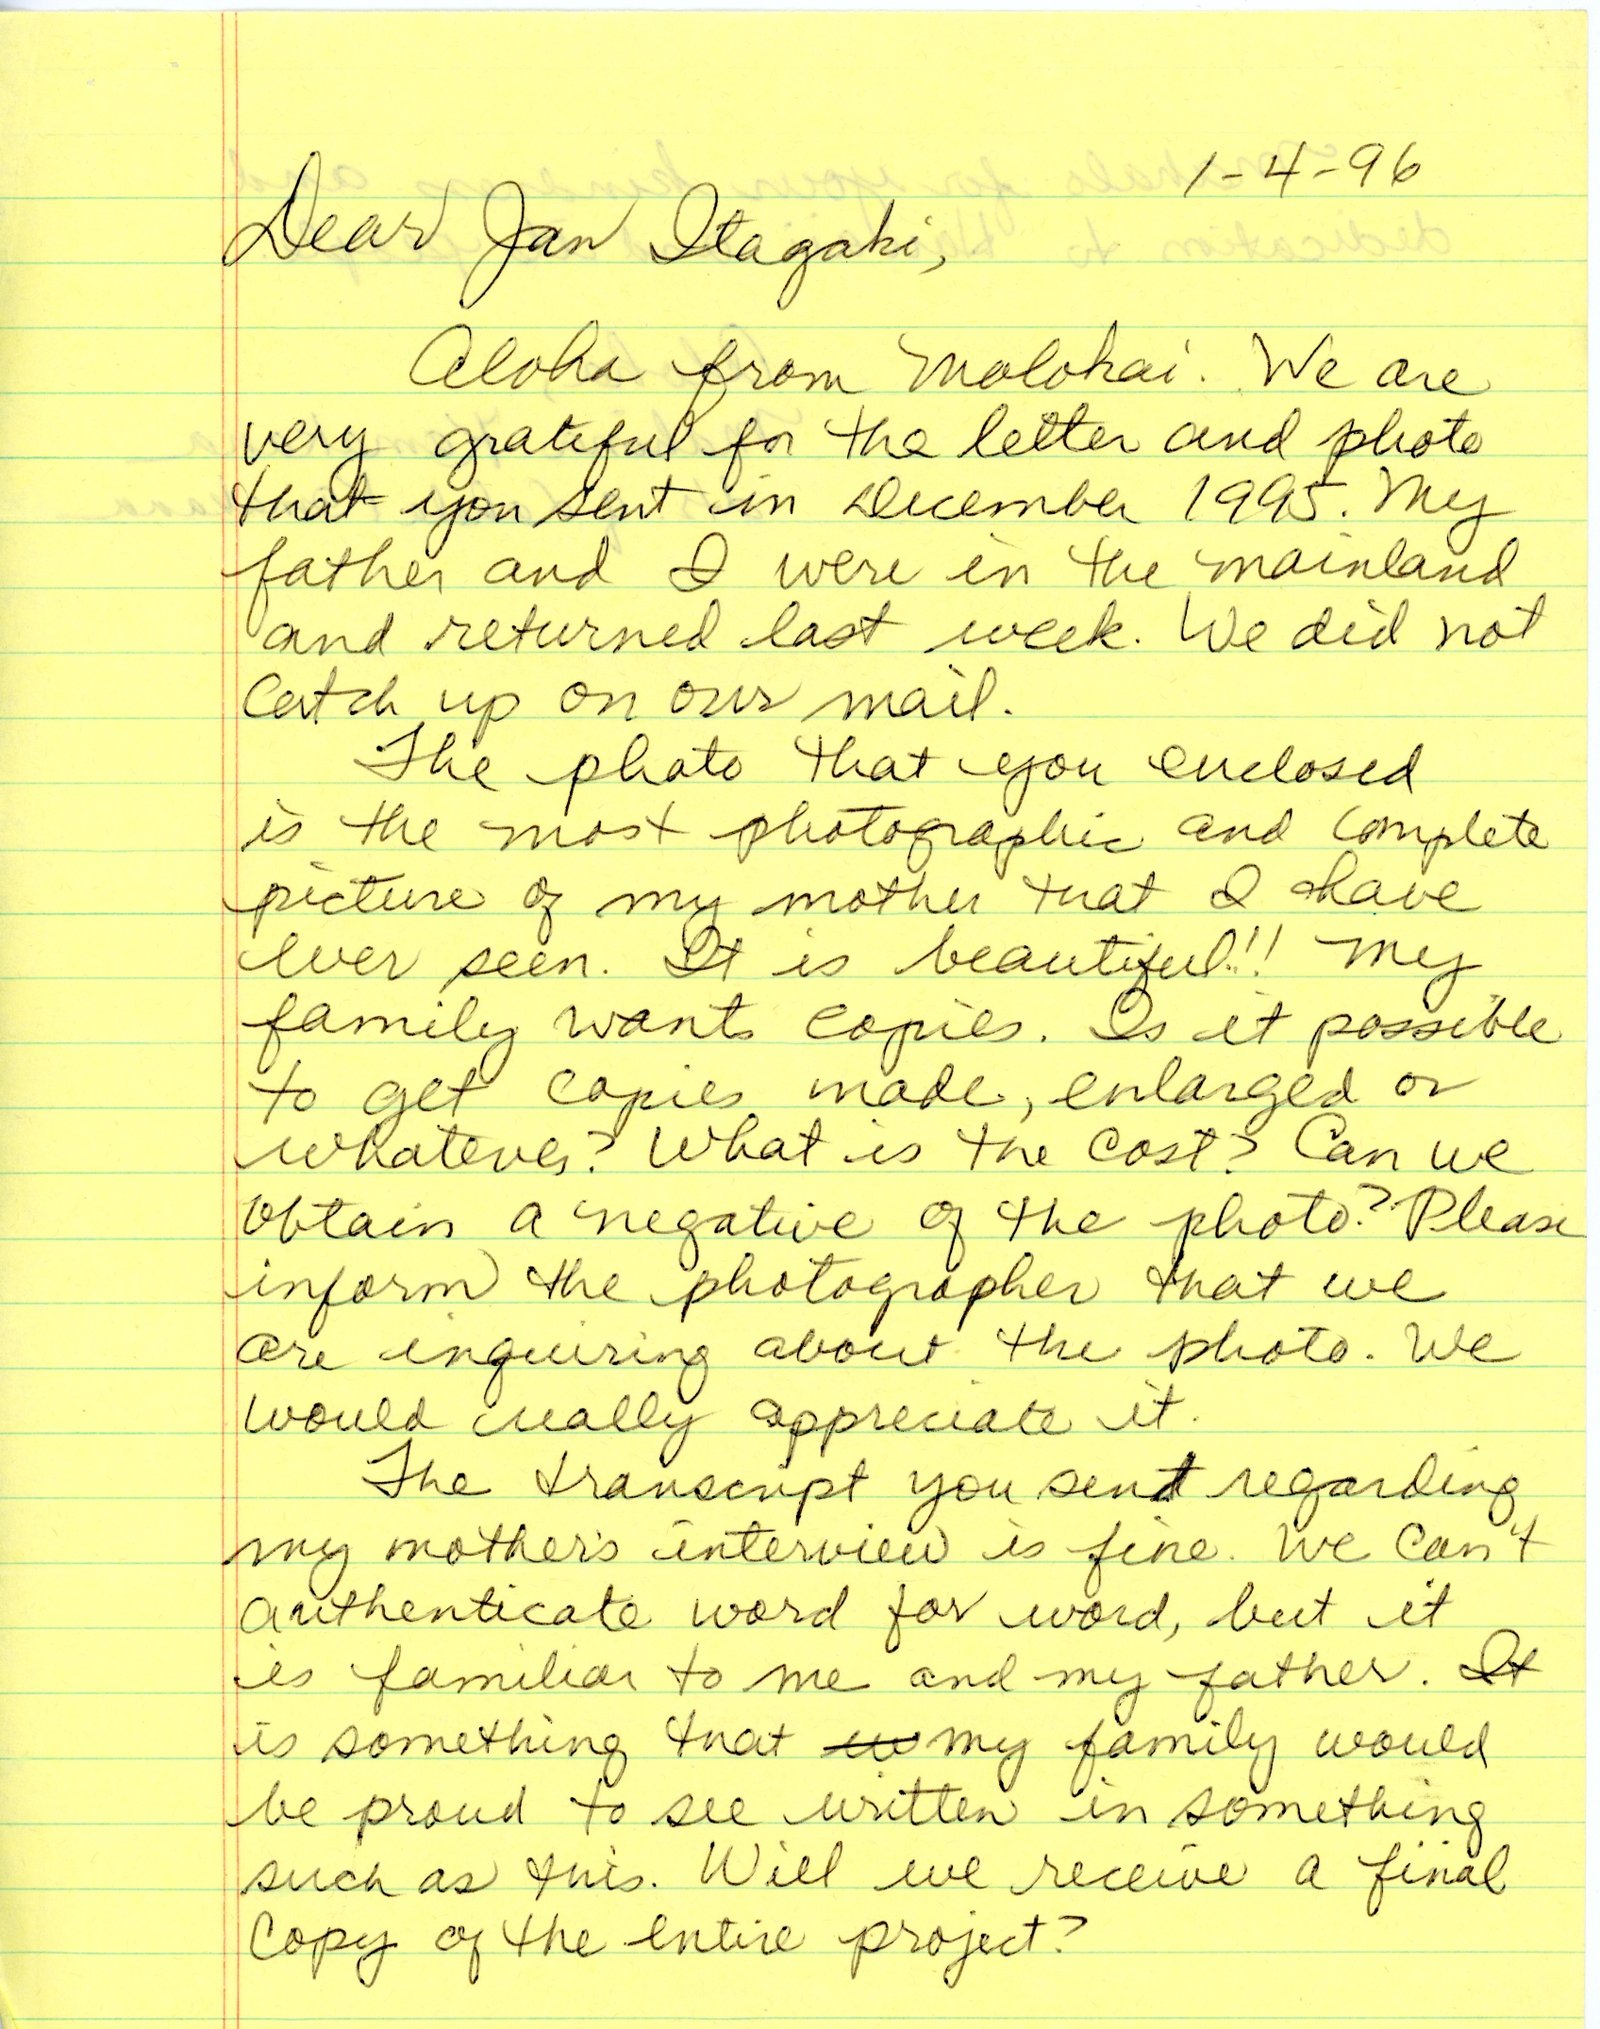 1-4-96
Dear Jan Itagaki,
Aloha from Molokai. We are
very grateful for the letter and photo
that you sent in December 1995. My
father and I were in the mainland
and returned last week. We did not
catch up on our mail.
The photo that you enclosed
is the most photographic and complete
picture of my mother that I have
ever seen. It is beautiful!! My
family wants copies. Is it possible
to get copies made, enlarged or
whatever? What is the cost? Can we
obtain a negative of the photo? Please
inform the photographer that we
are inquiring about the photo. We
would really appreciate it.
The transcript you sent regarding
my mother's interview is fine. We can't
authenticate word for word, but it
is familiar to me and my father. It
is something that my family would
be proud to see written in something
such as this. Will we receive a final
copy of the entire project?